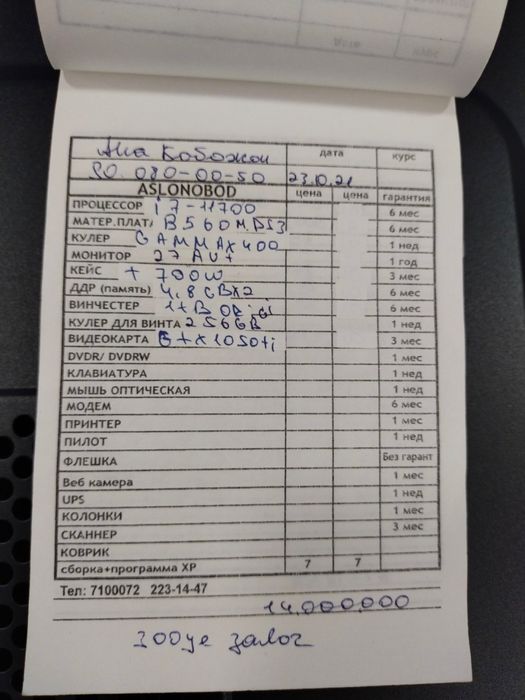 Ака Бобожон
дата курс
90 080-00-50 23.10.21
ASLONOBOD цена цена гарантия
ПРОЦЕССОР i7-11700 6 мес
МАТЕР.ПЛАТА B560M.DS3 6 мес
КУЛЕР GAMMAX400 1 нед
МОНИТОР 27 1 год
КЕЙС + 700W 3 мес
ДДР (память) 4.8GBX2 6 мес
ВИНЧЕСТЕР 6 мес
КУЛЕР ДЛЯ ВИНТА 256GB 1 нед
ВИДЕОКАРТА Gtx1050ti 3 мес
DVDR/ DVDRW 1 мес
КЛАВИАТУРА 1 нед
МЫШЬ ОПТИЧЕСКАЯ 1 нед
МОДЕМ 6 мес
ПРИНТЕР 1 мес
ПИЛОТ 1 нед
ФЛЕШКА Без гарант
Веб камера 1 мес
UPS 1 нед
КОЛОНКИ 1 мес
СКАННЕР 3 мес
КОВРИК
сборка+программа ХР 7 7
Тел: 7100072 223-14-47
14.000.000
300уе залог